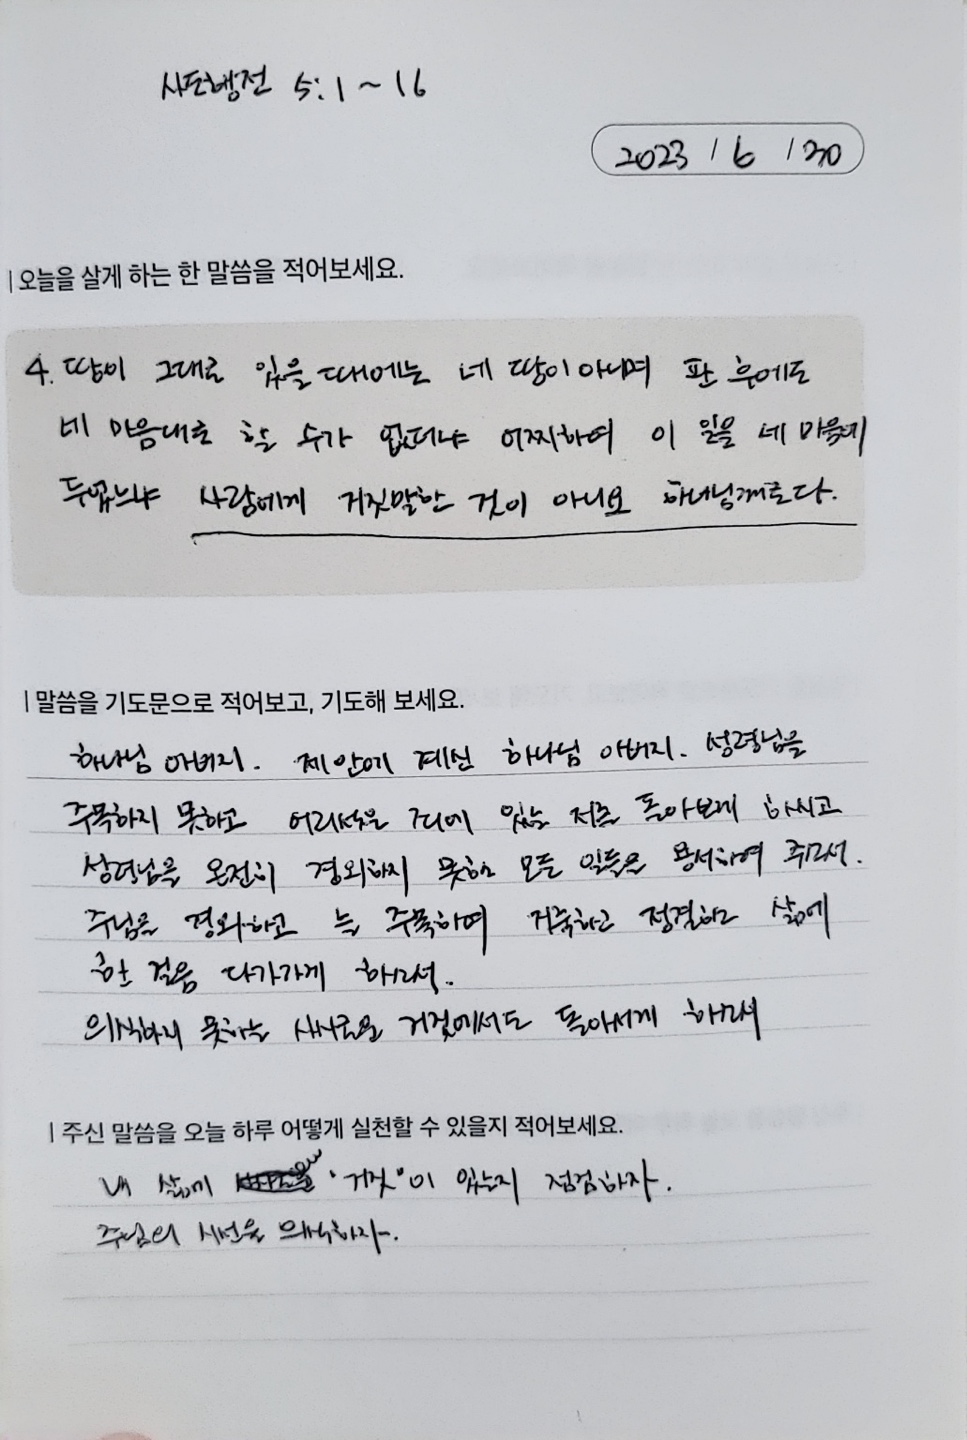 사도행전 5:1~16
2023 / 6 / 30
오늘을 살게 하는 한 말씀을 적어보세요.
4. 땅이 그대로 있을 때에는 네 땅이 아니며 판 후에도
네 마음대로 할 수가 없더냐 어찌하여 이 일을 네 마음에
두었느냐 사람에게 거짓말한 것이 아니요 하나님께로다.
말씀을 기도문으로 적어보고, 기도해 보세요.
하나님 아버지. 제 안에 계신 하나님 아버지. 성령님을
주목하지 못하고 어리석은 죄에 있는 저를 돌아보게 하시고
성령님을 온전히 경외하지 못한 모든 일들을 용서하여 주소서.
주님을 경외하고 늘 주목하며 거룩하고 정결한 삶에
한 걸음 다가가게 하소서.
의식하지 못하는 사소한 거짓에서도 돌아서게 하소서
주신 말씀을 오늘 하루 어떻게 실천할 수 있을지 적어보세요.
내 삶에 '거짓'이 있는지 점검하자.
주님의 시선을 의식하자.